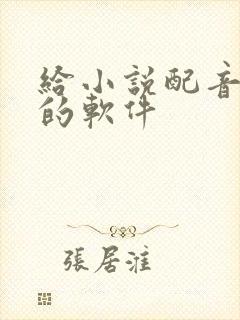 給小説配音
的軟件
張居淮